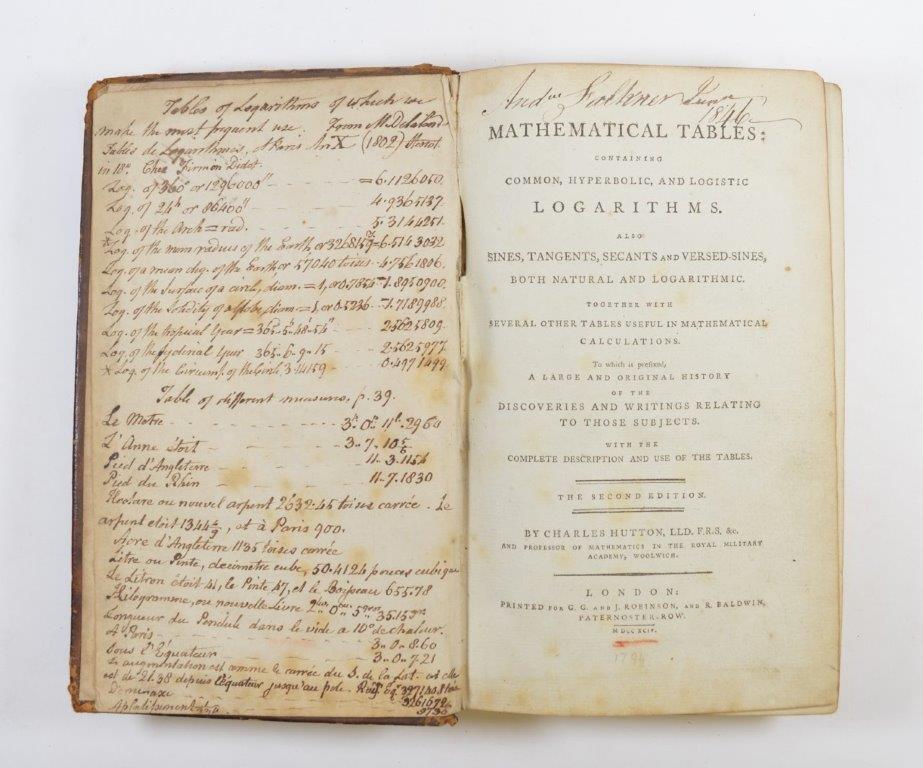 Tables of Logarithms of which we
make the most frequent use. From M. Delalande
Tables de Logarithmes, A Paris An X (1802)
in 18° Chez Firmin Didot.
Log. of 360° or 1296000" = 6.1126050.
Log. of 24h or 86400" 4.9365137.
Log. of the Arch = rad. 5.3144251.
Log. of the mean radius of the Earth, or 3268159 = 6.5143032
Log. of a mean deg. of the Earth, or 57040 toises 4.7561806.
Log. of the Surface of a circle, diam. = 1, or 0.7854 = 1.8950900.
Log. of the Solidity of a globe, diam. = 1, or 0.5236 1.7189988
Log. of the tropical Year = 365-5h-48'-54" 2.5625809.
Log. of the Sydereal Year 365-6-9-15 2.5625977
x Log. of the Circumf. of the Circle 3.14159 0.4971499
Table of different measures. p. 39.
Le Metre 3. 0. 11. 2960
L'Anne étoit 3-7-10 5/6
Pied d'Angleterre 11.3.1154
Pied du Rhin 11.7.1830
Hectare ou nouvel arpent 2632.45 toises carrée. Le
arpent etoit 1344 4/9, et à Paris 900.
Acre d'Angleterre 1135 toises carrée
Litre ou Pinte, decimetre cube, 50.4124 pouces cubique
Le Litron étoit 41, le Pinte 47, et le Boisseau 655.78
Kilogramme, ou nouvelle Livre 2 0 5 35.15
Longueur du Pendule dans le vide a 10° de chaleur.
A Paris 3-0-8.60
Sous l'Équateur 3-0-7.21
L'augmentation est comme le carrée du S. de la Lat. et elle
est de 2l.38 depuis l'équateur jusqu'au pole.
Demi axe 3261072
Aplatissement
Andw Faulkner Junr
1846
MATHEMATICAL TABLES:
CONTAINING
COMMON, HYPERBOLIC, AND LOGISTIC
LOGARITHMS.
ALSO
SINES, TANGENTS, SECANTS AND VERSED-SINES,
BOTH NATURAL AND LOGARITHMIC.
TOGETHER WITH
SEVERAL OTHER TABLES USEFUL IN MATHEMATICAL
CALCULATIONS.
To which is prefixed,
A LARGE AND ORIGINAL HISTORY
OF THE
DISCOVERIES AND WRITINGS RELATING
TO THOSE SUBJECTS.
WITH THE
COMPLETE DESCRIPTION AND USE OF THE TABLES.
THE SECOND EDITION.
BY CHARLES HUTTON, LLD. F.R.S. &c.
AND PROFESSOR OF MATHEMATICS IN THE ROYAL MILITARY
ACADEMY, WOOLWICH.
LONDON:
PRINTED FOR G. G. AND J. ROBINSON, AND R. BALDWIN,
PATERNOSTER-ROW.
M DCC XCIV.
1794